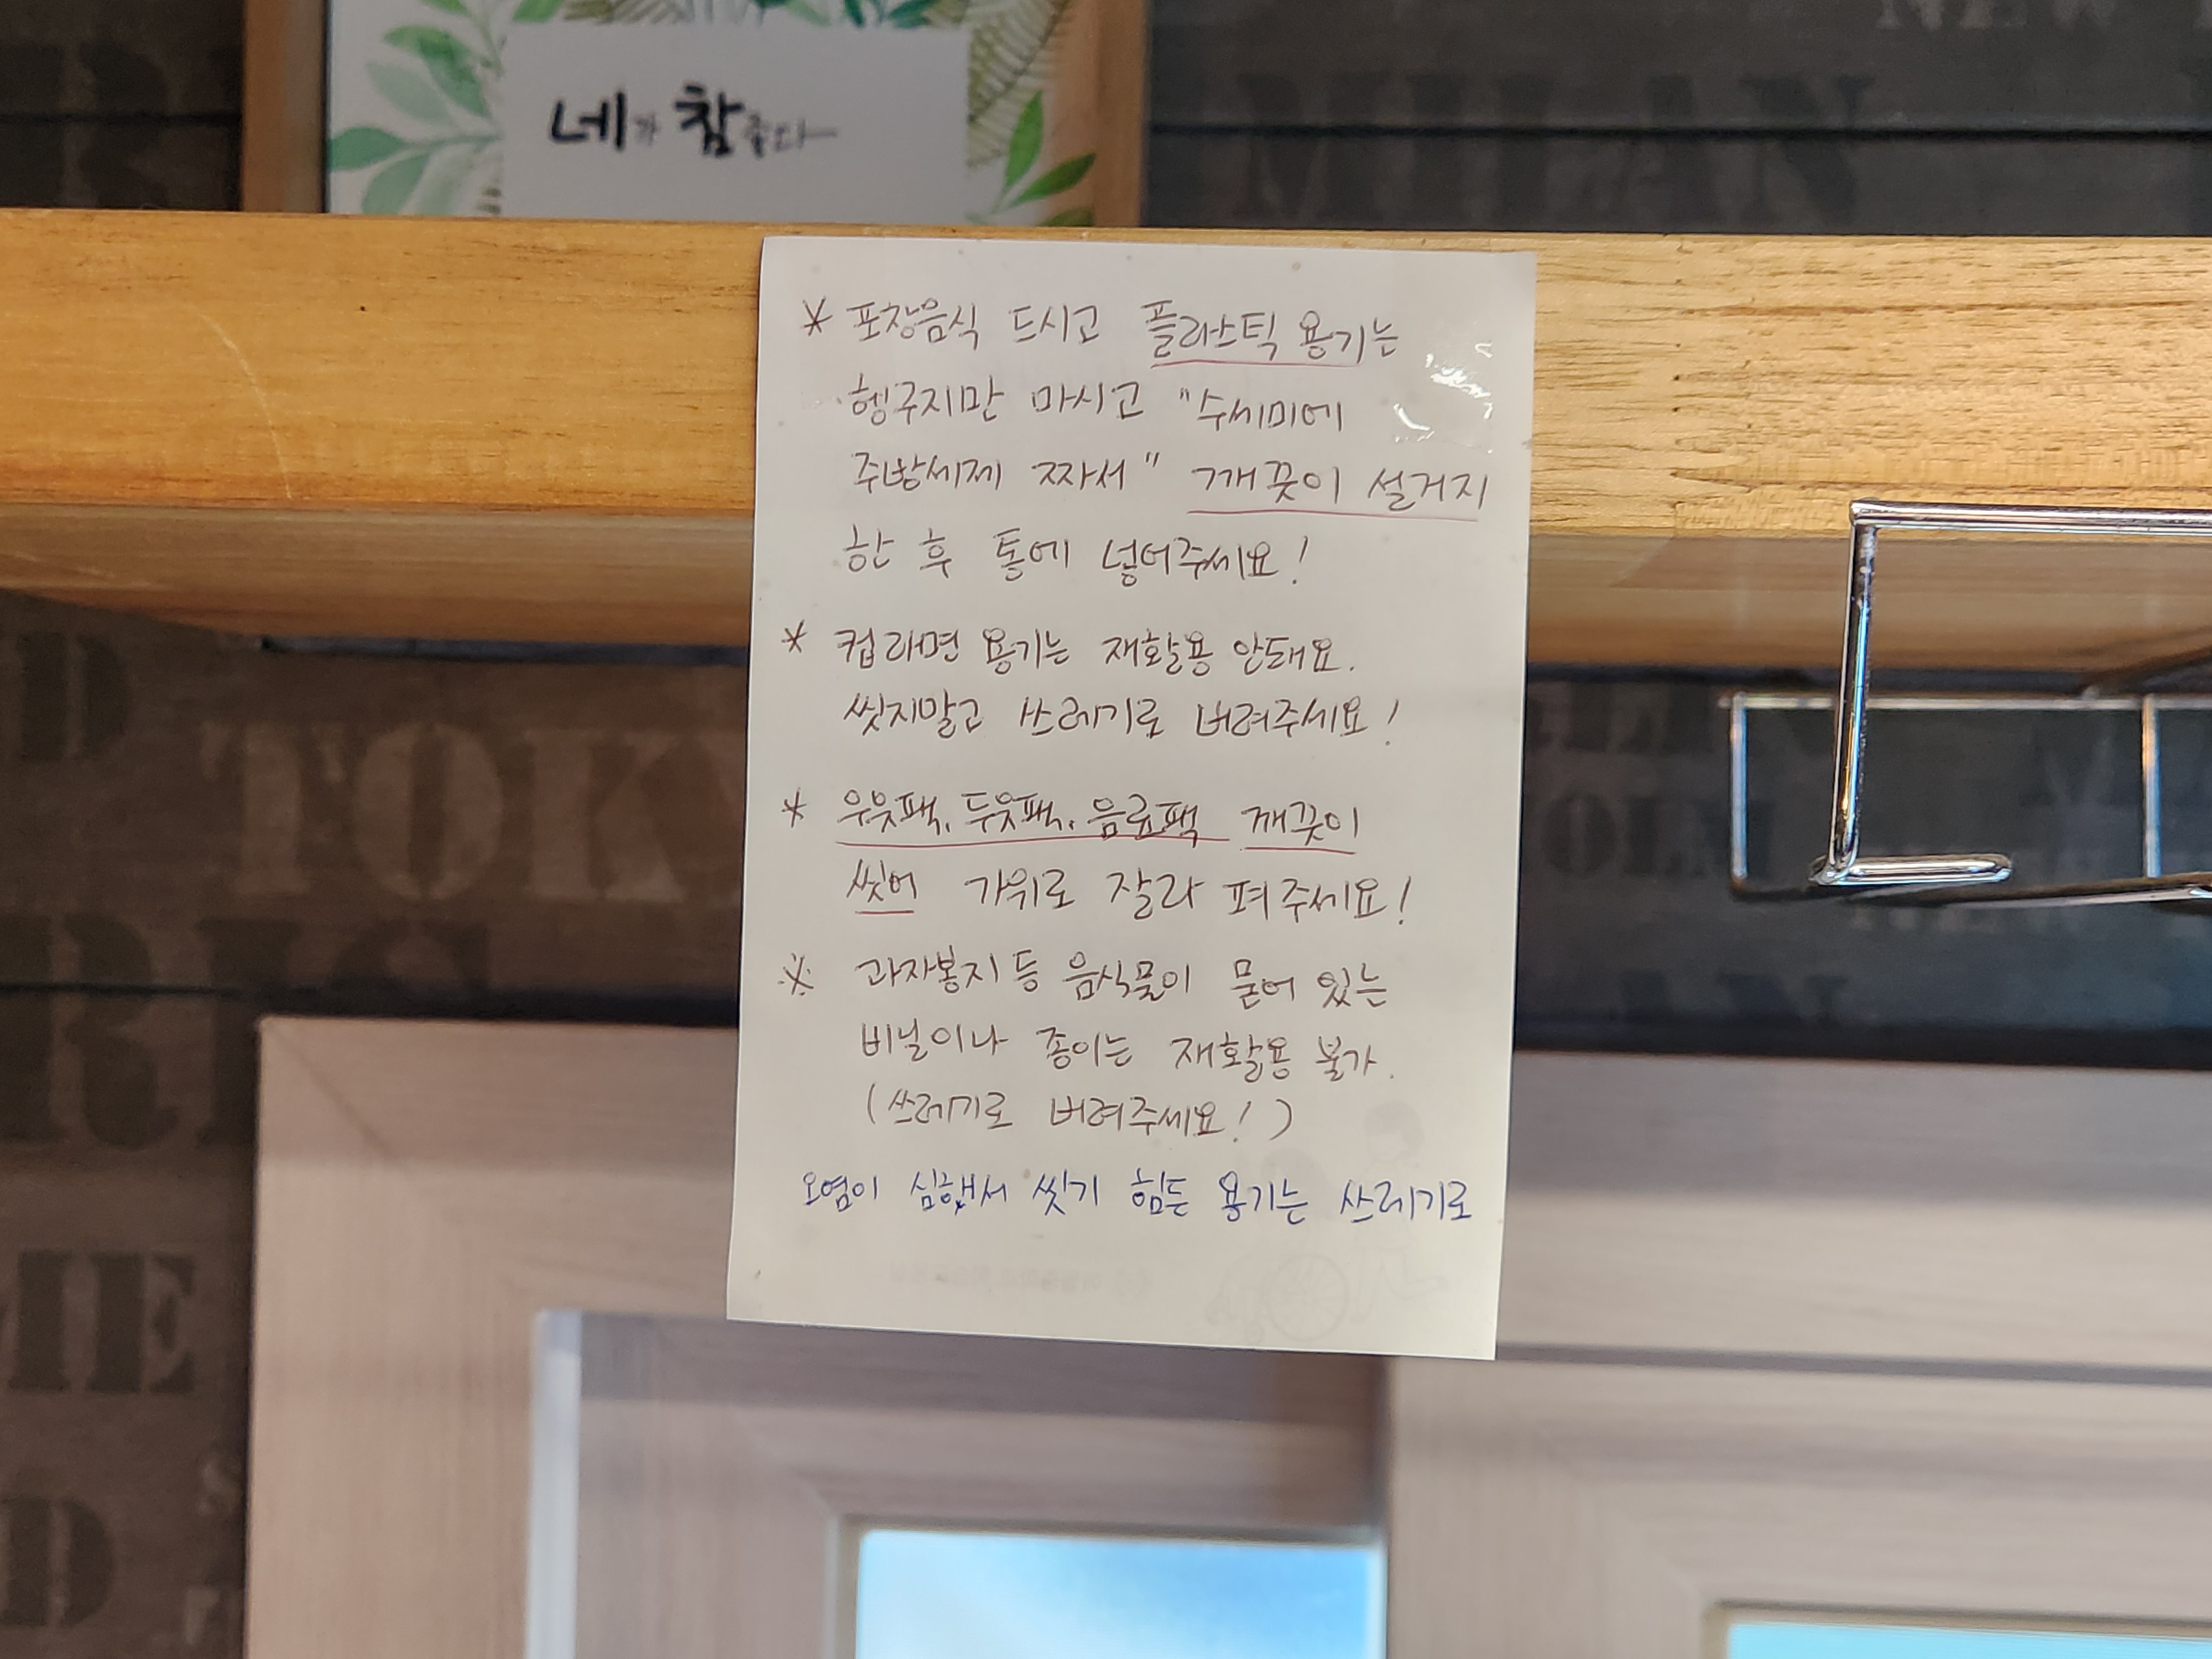 네가 참 좋다
NEW
MILAN
* 포장음식 드시고 플라스틱 용기는
헹구지만 마시고 "수세미에
주방세제 짜서" 깨끗이 설거지
한 후 통에 넣어주세요!
* 컵라면 용기는 재활용 안돼요.
씻지말고 쓰레기로 버려주세요!
* 우윳팩, 두윳팩, 음료팩 깨끗이
씻어 가위로 잘라 펴주세요!
※ 과자봉지 등 음식물이 묻어 있는
비닐이나 종이는 재활용 불가.
(쓰레기로 버려주세요!)
오염이 심해서 씻기 힘든 용기는 쓰레기로
TOKY